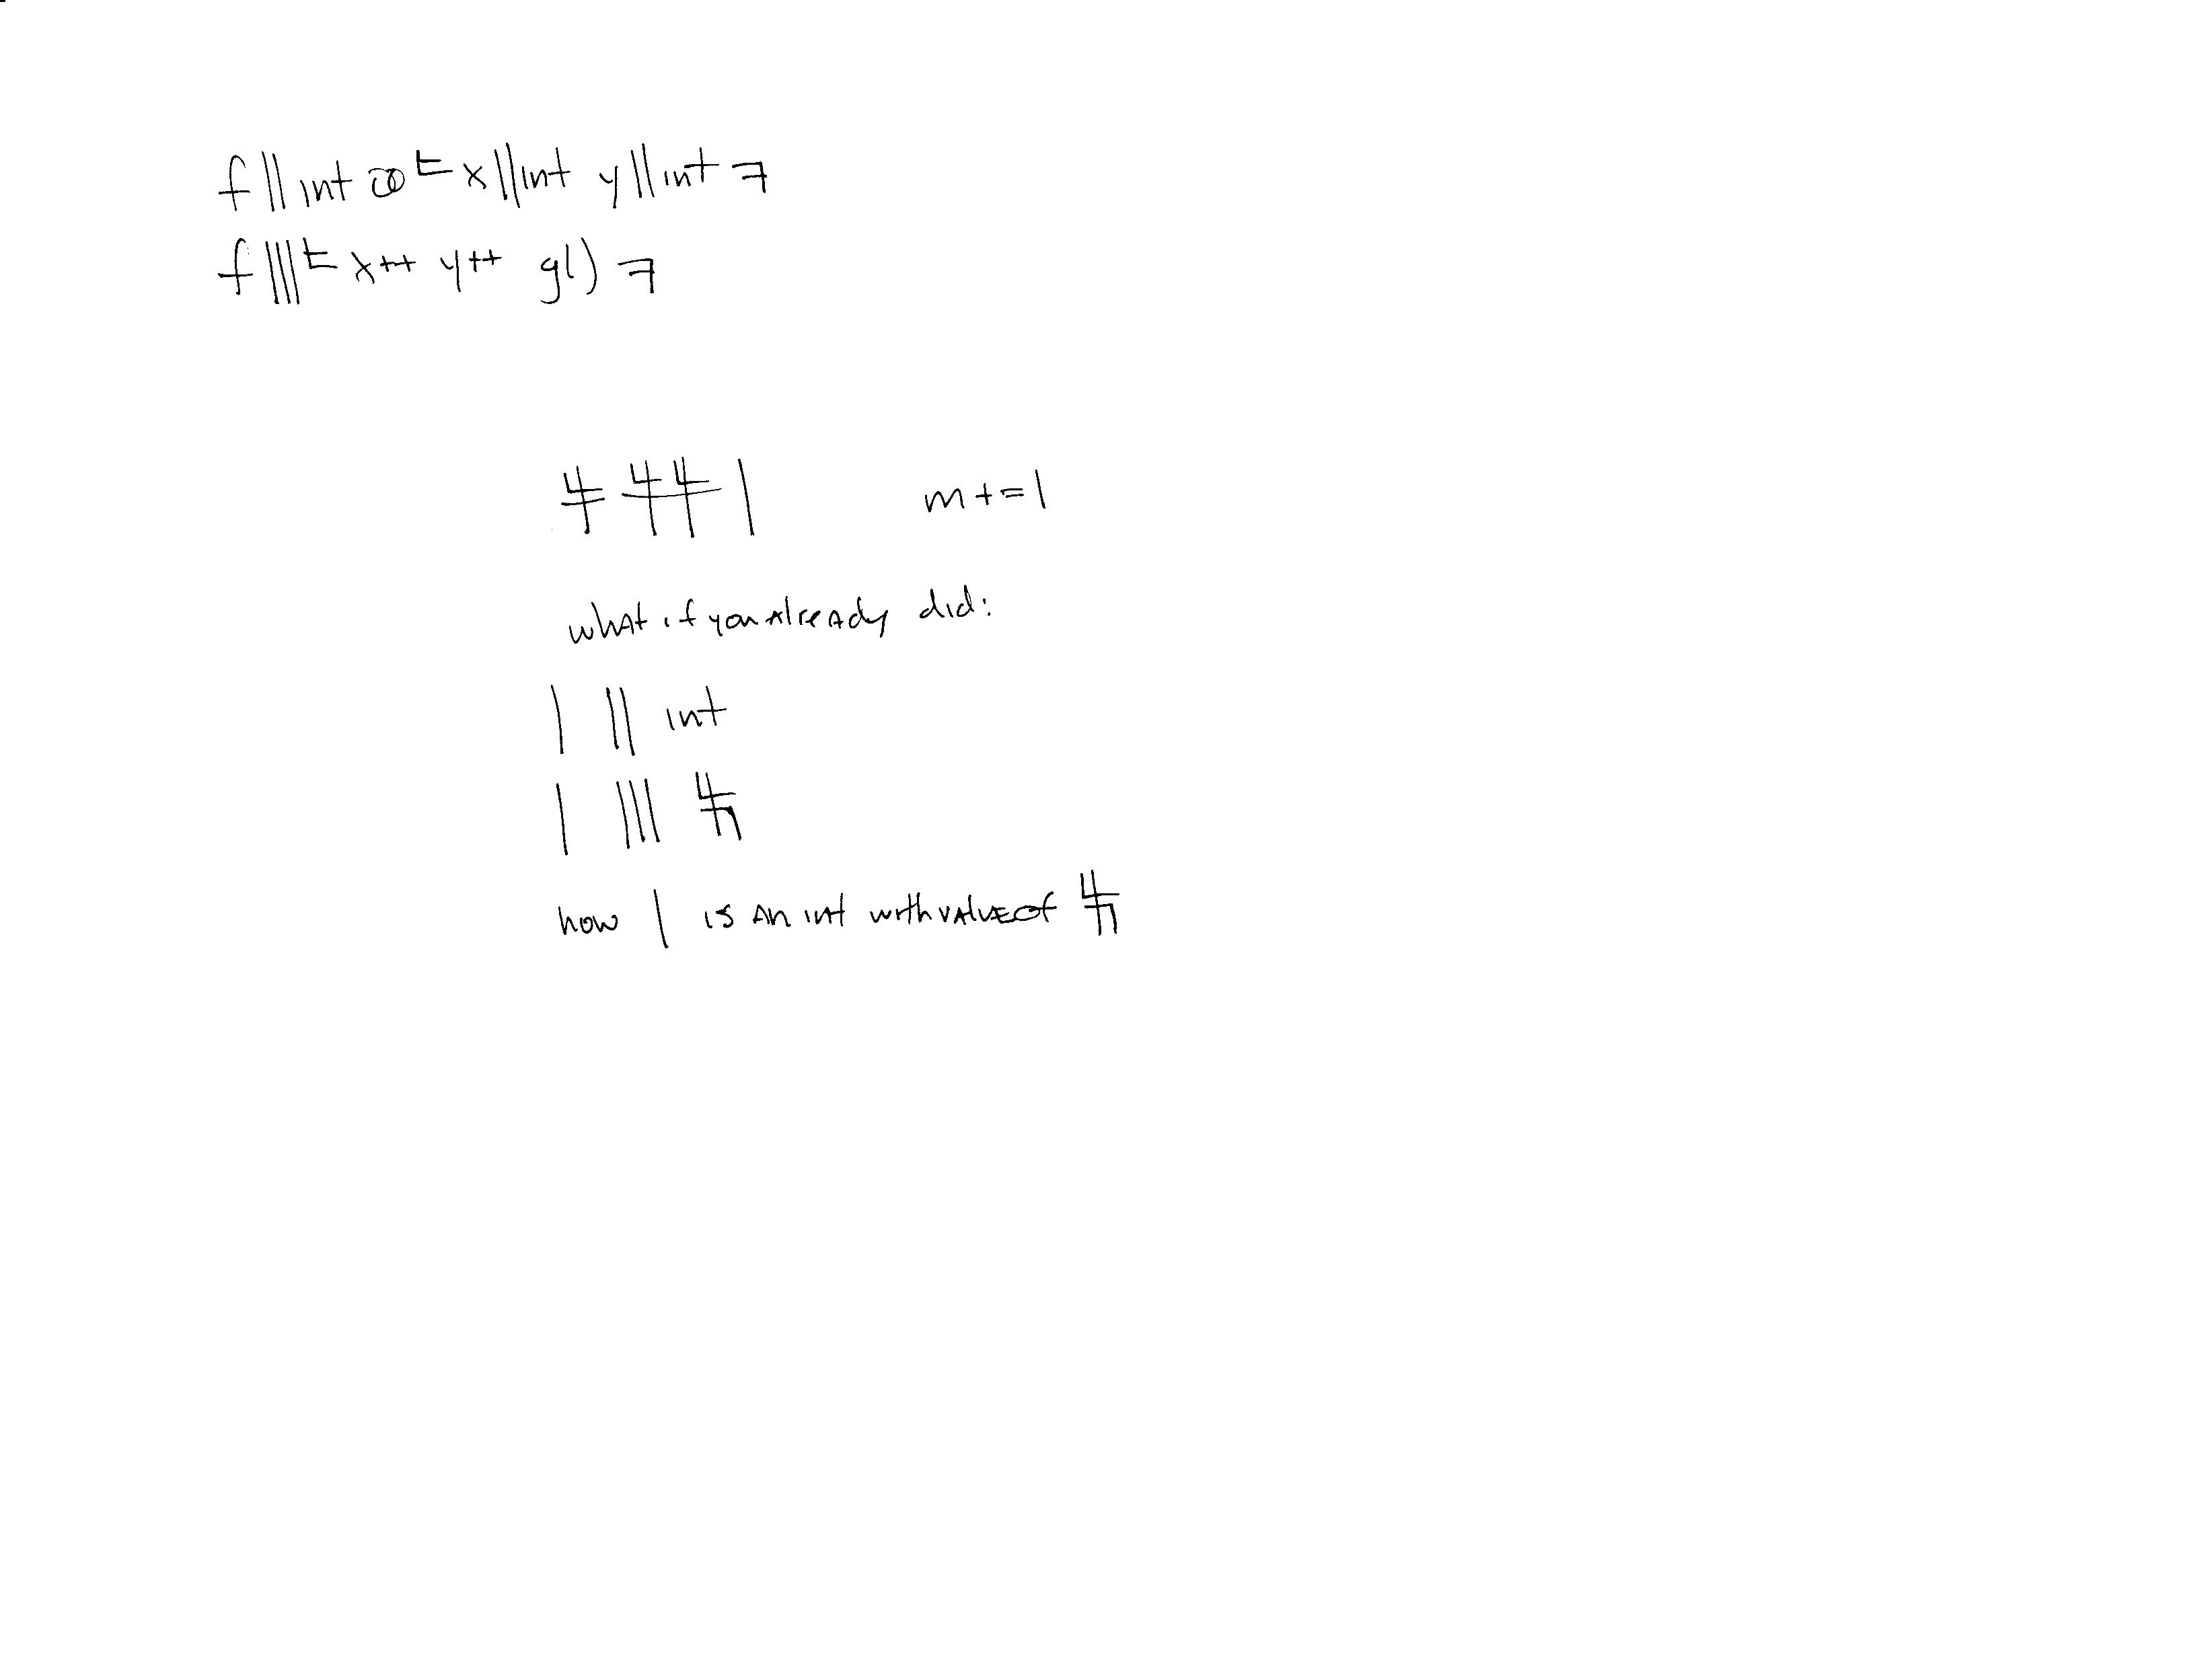 f || int x || int y || int
f ||| x++ y++ g()
| m += |
what if you already did:
| || int
| |||
now | is an int with value of